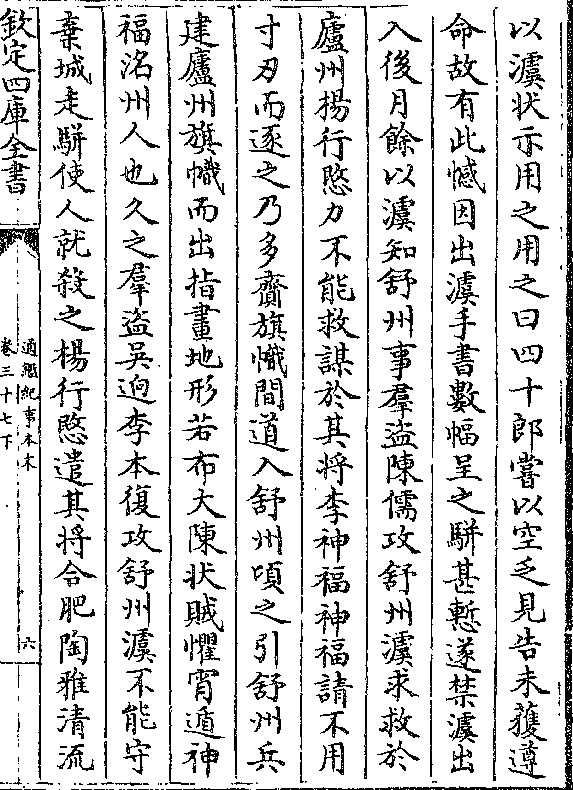 以澞状示用之用之曰四十郎嘗以空乏見告未獲遵
命故有此憾因出澞手書數幅呈之駢甚慙遂禁澞出
入後月餘以澞知舒州事羣盜陳儒攻舒州澞求救於
廬州楊行愍力不能救謀於其將李神福神福請不用
寸刃而逐之乃多齎旗幟間道入舒州頃之引舒州兵
建廬州旗幟而出指畫地形若布大陳状賊懼宵遁神
福洺州人也久之羣盜吳迥李本復攻舒州澞不能守
棄城走駢使人就殺之楊行愍遣其將合肥陶雅清流
欽定四庫全書
通鑑紀事本末
卷三十七下
六